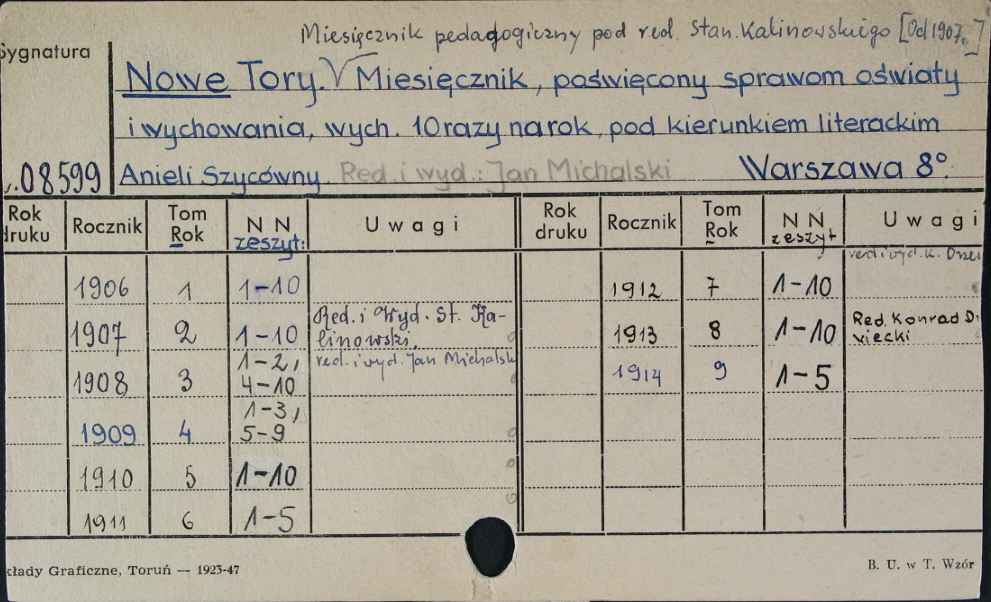 Miesięcznik pedagogiczny pod red. Stan. Kalinowskiego [Od 1907.]
Sygnatura
Nowe Tory. √ Miesięcznik, poświęcony sprawom oświaty
i wychowania, wych. 10 razy na rok, pod kierunkiem literackim
08599 Anieli Szycówny. Red. i wyd.: Jan Michalski Warszawa 8°.
Rok druku Rocznik Tom Rok N N zeszyt: Uwagi Rok druku Rocznik Tom Rok N N zeszyt Uwagi
red. i wyd. K.
1906 1 1-10 1912 7 1-10
1907 2 1-10 Red. i Wyd. St. Ka-
linowski. 1913 8 1-10 Red. Konrad
1908 3 1-2, 4-10 red. i wyd. Jan Michalsk 1914 9 1-5
1909 4 1-3, 5-9
1910 5 1-10
1911 6 1-5
kłady Graficzne, Toruń — 1923-47 B. U. w T. Wzór